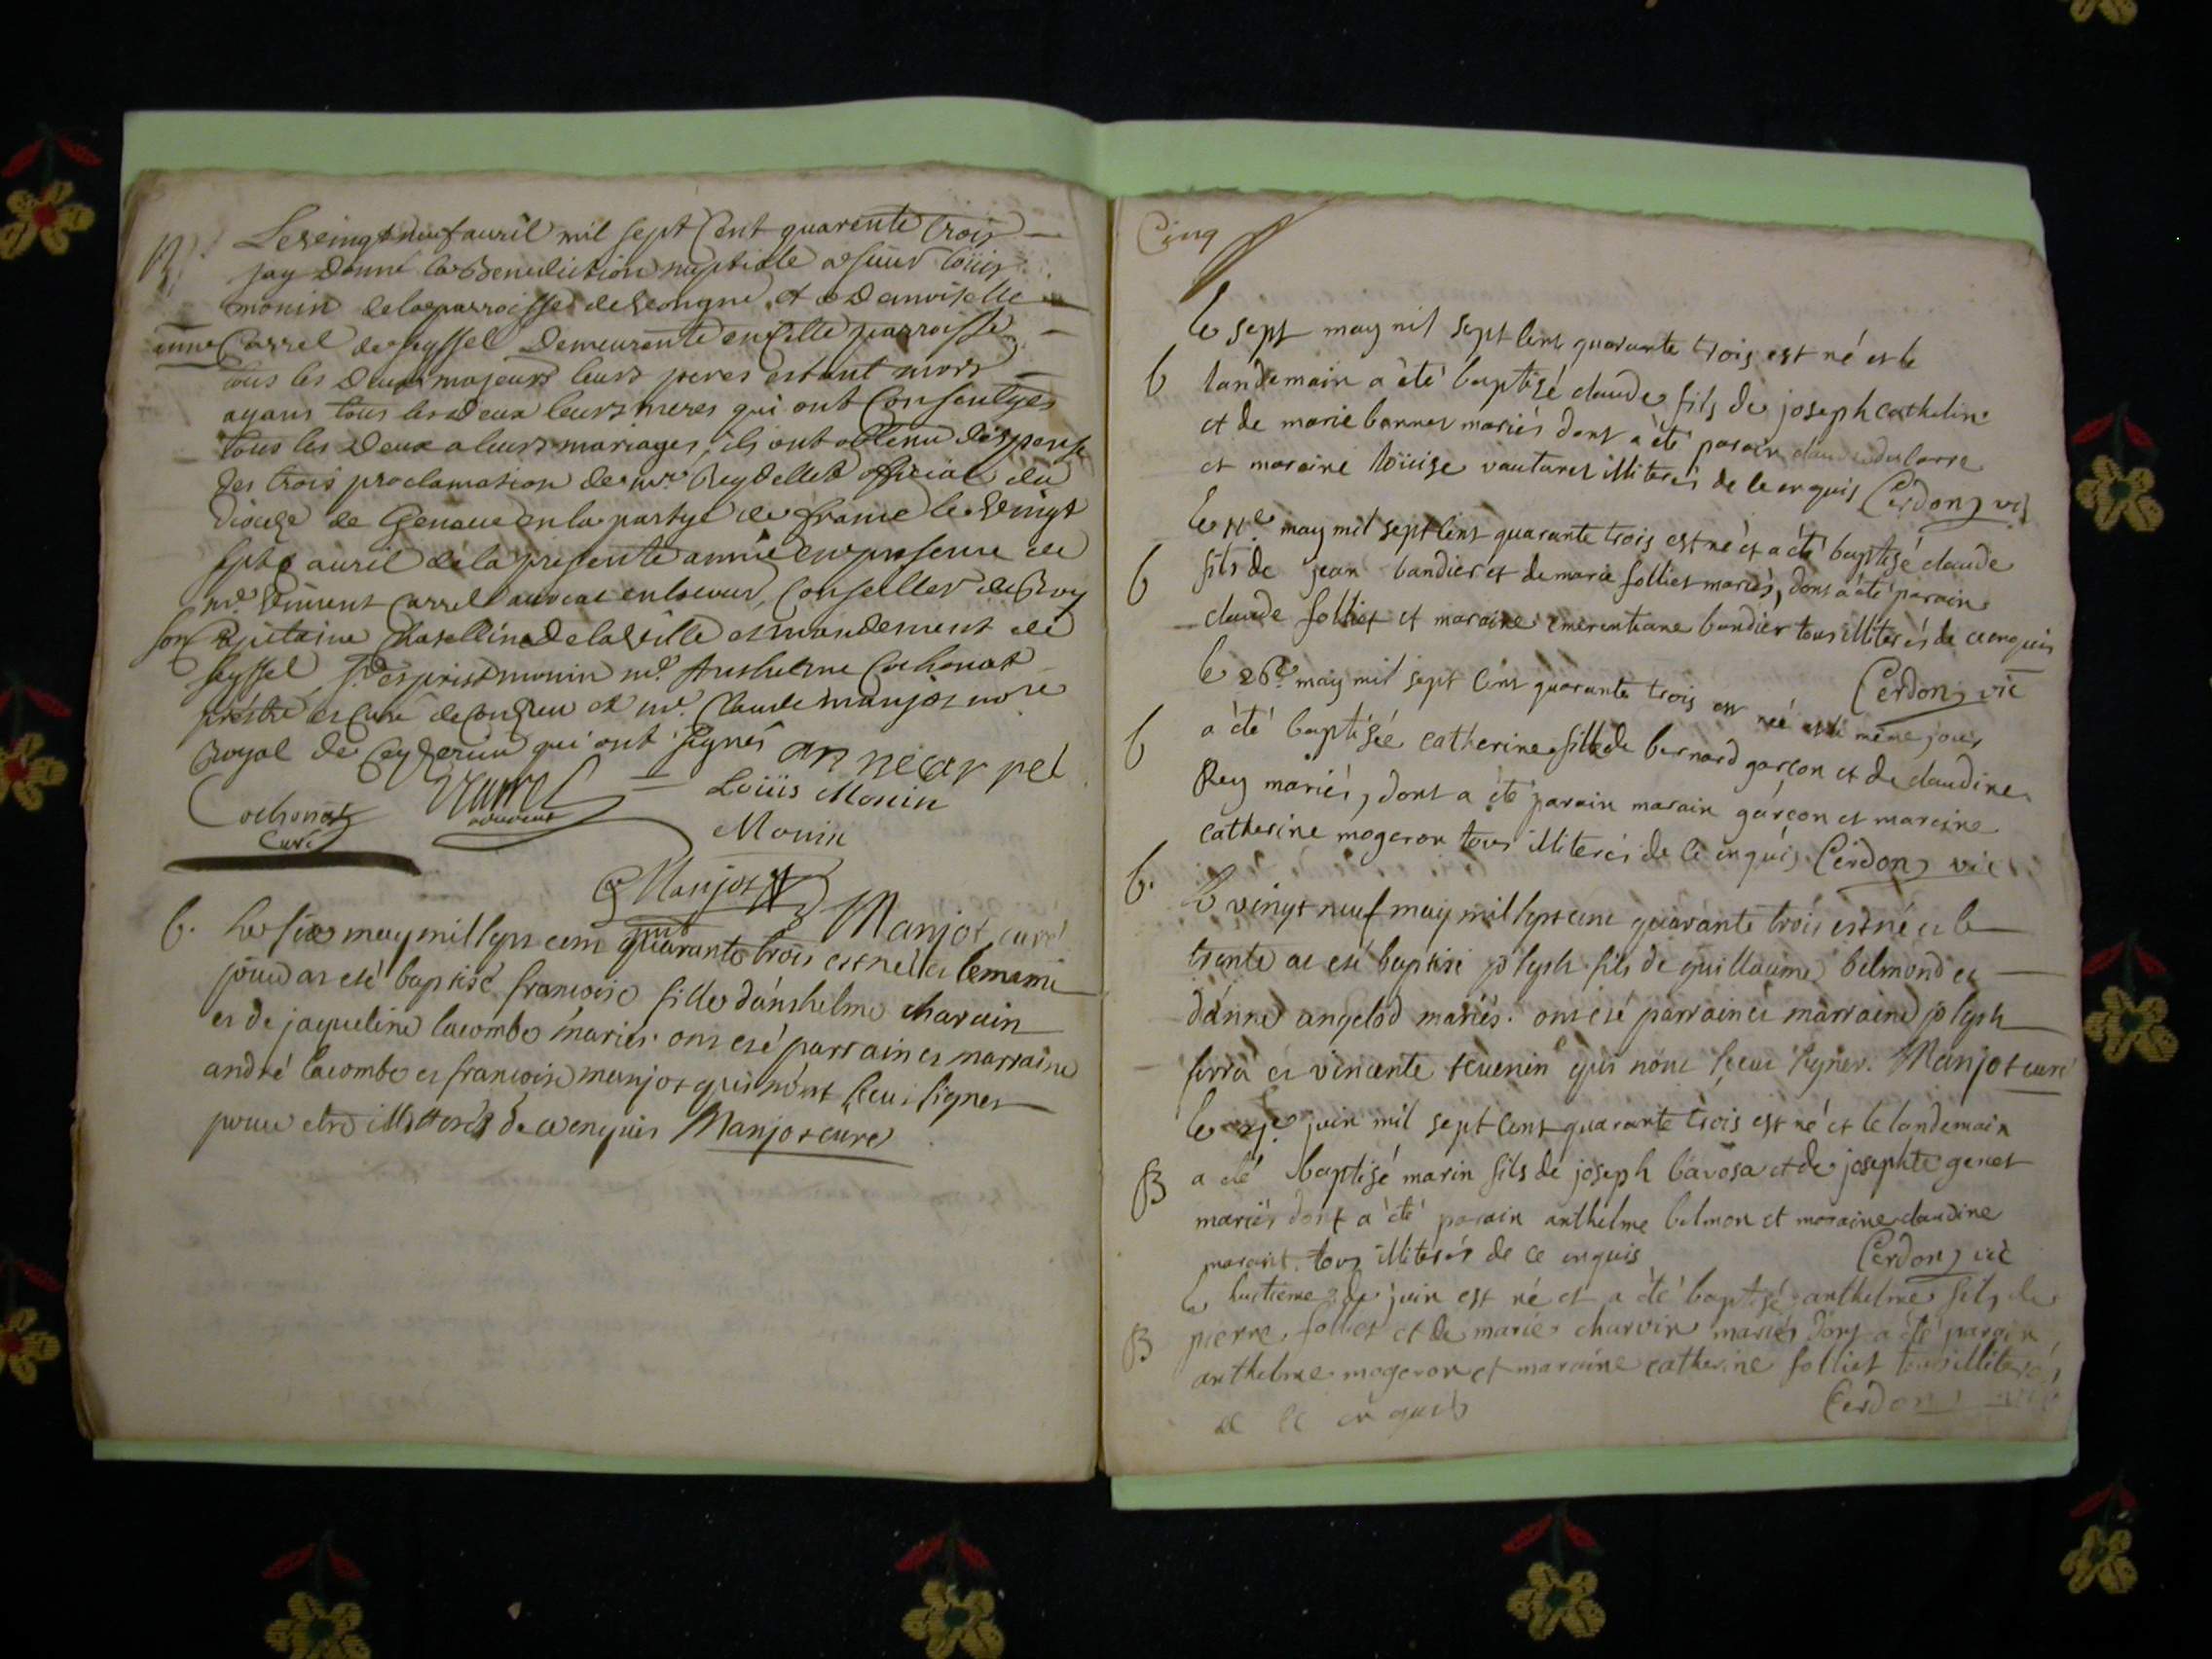 Le vingt neuf auril mil sept Cent quarente trois
jay donné la Benediction nuptialle a sieur Loüis
monin de la parroisse de et a Demoiselle
anne Carrel de seyssel Demeurente en Cette parroisse
tous les Deux majeurs leurs peres estant morts
ayans tous les deux leurs meres qui ont Consentyes
tous les Deux a leurs mariages, ils ont obtenu dispense
des trois proclamation de mr. Reydellet official du
diocese de Geneue en la partye de france le vingt
sept auril de la presente année en presence de
mr. vincent Carrel auocat en la cour, Conseiller du Roy
son Capitaine Chatellin de la ville et mandement de
seyssel, sr. esprist monin mr. Anthelme Cochonat
prestre et Curé de et mr. Claude manjot nore
Royal de Ceyzerieu qui ont signés
anne carrel
Cochonat
Curé
VCarrel
aduocat
Loüis Monin
Monin
C Manjot
Manjot curé
b. Le six may mil sept cent quarante trois est née et le meme
jour a esté baptisé francoise fille d'anthelme charvin
et de jaqueline lacombe mariés. ont esté parrain et marraine
andré lacombe et francoise manjot qui n'ont sceu signer
pour etre illitterés de ce enquis Manjot curé
Cinq
le sept may mil sept cent quarante trois est né et le
b landemain a été baptisé claude fils de joseph catheline
et de marie bonnet mariés dont a été parain claude
et maraine loüise vauturet illiterés de ce enquis Cerdon, vic
le 11e may mil sept cent quarante trois est né et a été baptisé claude
b fils de jean bandier et de marie folliet mariés, dont a été parain
claude folliet et maraine emerentiane bandier tous illiterés de ce enquis
Cerdon, vic
le 26e may mil sept cent quarante trois est née et le même jour
b a été baptisée catherine fille de bernard garçon et de claudine
Rey mariés, dont a été parain marain garçon et maraine
catherine mogeron tous illiterés de ce enquis Cerdon, vic
b. Le vingt neuf may mil sept cent quarante trois est né et le
trente a esté baptisé joseph fils de guillaume belmond et
d'anne angelod mariés. ont esté parrain et marraine joseph
serra et vincente teuenin qui n'ont sceu signer. Manjot curé
le juin mil sept cent quarante trois est né et le landemain
B a été baptisé marin fils de joseph bavosa et de josephte genet
mariés dont a été parain anthelme belmon et maraine claudine
marant. tous illiterés de ce enquis Cerdon, vic
le huitieme de juin est né et a été baptisé anthelme fils de
B pierre folliet et de marie charvin mariés dont a été parain
anthelme mogeron et maraine catherine folliet tous illiterés
de ce enquis Cerdon, vic